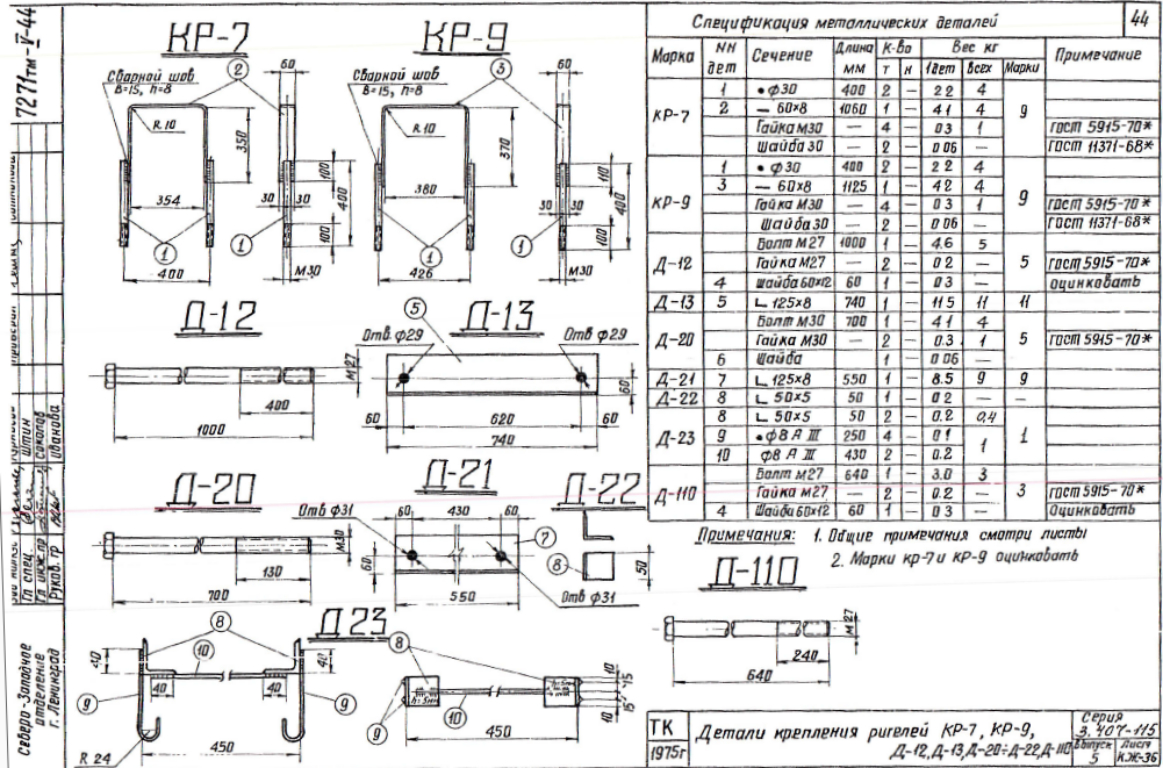 7271тм-V-44
КР-7
КР-9
Сварной шов
В=15, h=8
2
60
R.10
350
354
1
400
30 30
100
100
400
М30
1
Сварной шов
В=15, h=8
3
60
R10
370
380
1
426
30 30
110
100
400
М30
1
Д-12
М27
400
1000
Д-13
5
Отв. ф29
Отв ф29
60
60
620
60
740
Д-20
М30
130
700
Д-21
Отв ф31
60
430
60
7
60
Отв ф31
550
Д-22
8
50
Д 23
8
10
40
40
40
40
9
9
R 24
450
8
10
9
450
10
15
15
10
Д-110
М27
240
640
Спецификация металлических деталей
44
Марка
NN дет
Сечение
Длина мм
К-во
т н
Вес кг
1дет Всех Марки
Примечание
КР-7 1 •ф30 400 2 — 2 2 4 9
2 — 60×8 1060 1 — 4 1 4
Гайка М30 — 4 — 0 3 1 гост 5915-70*
Шайба 30 — 2 — 0 06 — гост 11371-68*
КР-9 1 • ф30 400 2 — 2 2 4 9
3 — 60×8 1125 1 — 4 2 4
Гайка М30 — 4 — 0 3 1 гост 5915-70*
Шайба 30 — 2 — 0 06 — гост 11371-68*
Д-12 Болт М27 1000 1 — 4.6 5 5
Гайка М27 — 2 — 0 2 — гост 5915-70*
4 шайба 60×12 60 1 — 0 3 — оцинковать
Д-13 5 ∟125×8 740 1 — 11 5 11 11
Д-20 Болт М30 700 1 — 4 1 4 5
Гайка М30 — 2 — 0.3 1 гост 5915-70*
6 Шайба — 1 — 0 06 —
Д-21 7 ∟125×8 550 1 — 8.5 9 9
Д-22 8 ∟50×5 50 1 — 0 2 — —
Д-23 8 ∟50×5 50 2 — 0.2 0,4 1
9 •ф8 А III 250 4 — 0 1 1
10 ф8 А III 430 2 — 0.2
Д-110 Болт М27 640 1 — 3.0 3 3
Гайка М27 — 2 — 0.2 — гост 5915-70*
4 Шайба 60×12 60 1 — 0 3 — Оцинковать
Примечания: 1. Общие примечания смотри листы
2. Марки кр-7 и КР-9 оцинковать
ТК
1975г
Детали крепления ригелей КР-7, КР-9,
Д-12, Д-13, Д-20÷Д-22, Д-110
Серия
3.407-115
Выпуск
5
Лист
КЖ-36
Гл спец
Гл инж.пр
Руков. гр
Штин
Соколов
Иванова
Северо-Западное
отделение
г. Ленинград